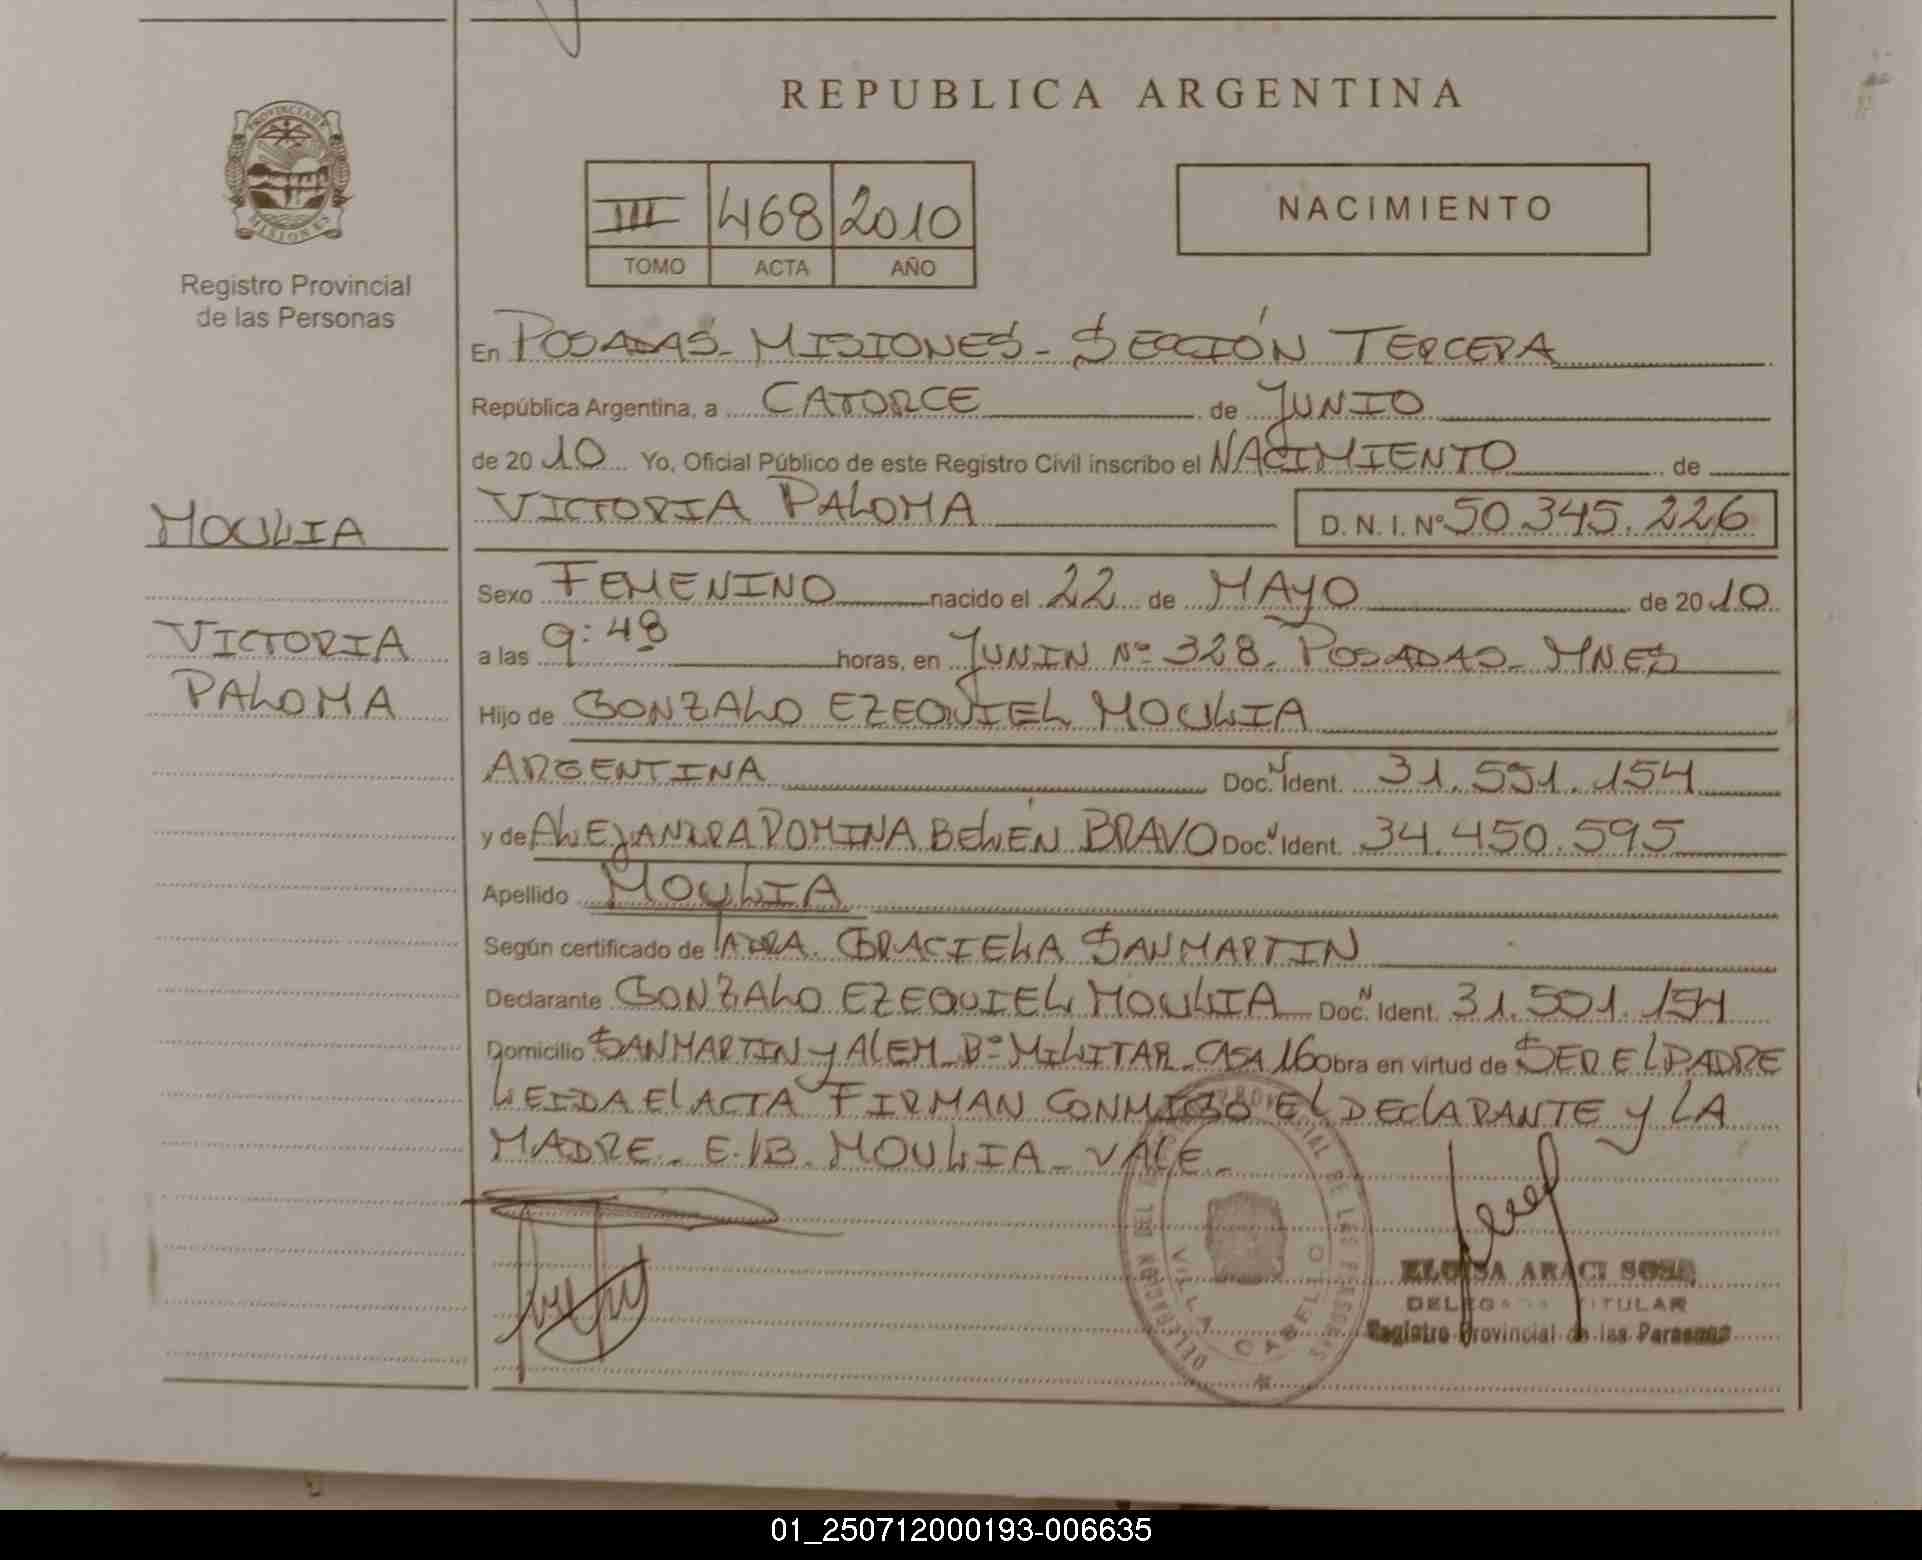 REPUBLICA ARGENTINA
PROVINCIA DE MISIONES
Registro Provincial
de las Personas
III 468 2010
TOMO ACTA AÑO
NACIMIENTO
En POSADAS - MISIONES - SECCIÓN TERCERA
República Argentina, a CATORCE de JUNIO
de 2010 Yo, Oficial Público de este Registro Civil inscribo el NACIMIENTO de
VICTORIA PALOMA D. N. I. Nº 50.345.226
MOULIA
VICTORIA
PALOMA
Sexo FEMENINO nacido el 22 de MAYO de 2010
a las 9:48 horas, en JUNIN Nº 328. POSADAS - MNES
Hijo de GONZALO EZEQUIEL MOULIA
ARGENTINA Doc. N Ident. 31.551.154
y de ALEJANDRA ROMINA BELÉN BRAVO Doc. N Ident. 34.450.595
Apellido MOULIA
Según certificado de LA DRA. GRACIELA SANMARTIN
Declarante GONZALO EZEQUIEL MOULIA Doc. N Ident. 31.501.154
Domicilio SAN MARTIN y ALEM - Bº MILITAR - CASA 16 obra en virtud de SER EL PADRE
LEIDA El ACTA FIRMAN CONMIGO EL DEClARANTE y LA
MADRE - E./B. MOULIA - VALE -
DELEGACION DEL REGISTRO PROVINCIAL DE LAS PERSONAS
VILLA CABELLO
ELOISA ARACI SOSA
DELEGADA TITULAR
Registro Provincial de las Personas
01_250712000193-006635